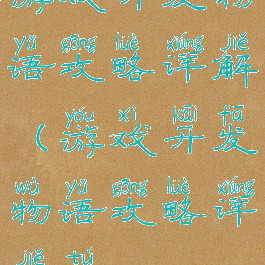 游戏开发物
yǔ gōng lüè xiáng jiě
语攻略详解
yóu xì kāi fā
(游戏开发
wù yǔ gōng lüè xiáng
物语攻略详
jiě tú